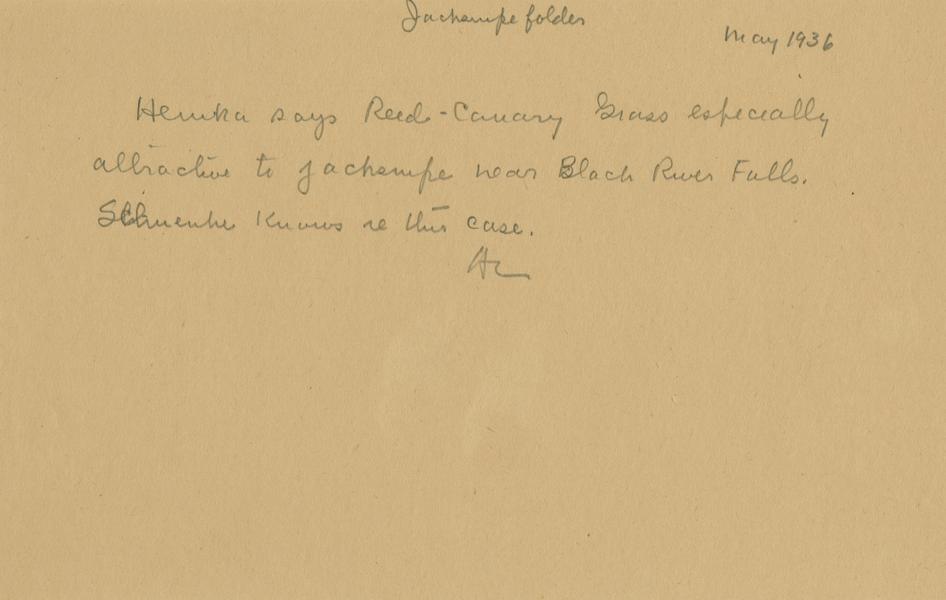 Jacksnipe folder
May 1936
says Reed-Canary Grass especially
attractive to jacksnipe near Black River Falls.
knows re this case.